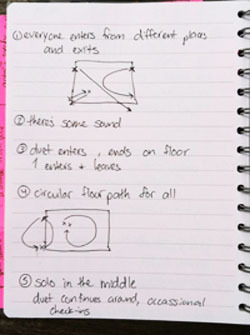 ① everyone enters from different places
and exits
② there's some sound
③ duet enters, ends on floor
1 enters + leaves
④ circular floor path for all
⑤ solo in the middle
duet continues around, occassional
check-ins